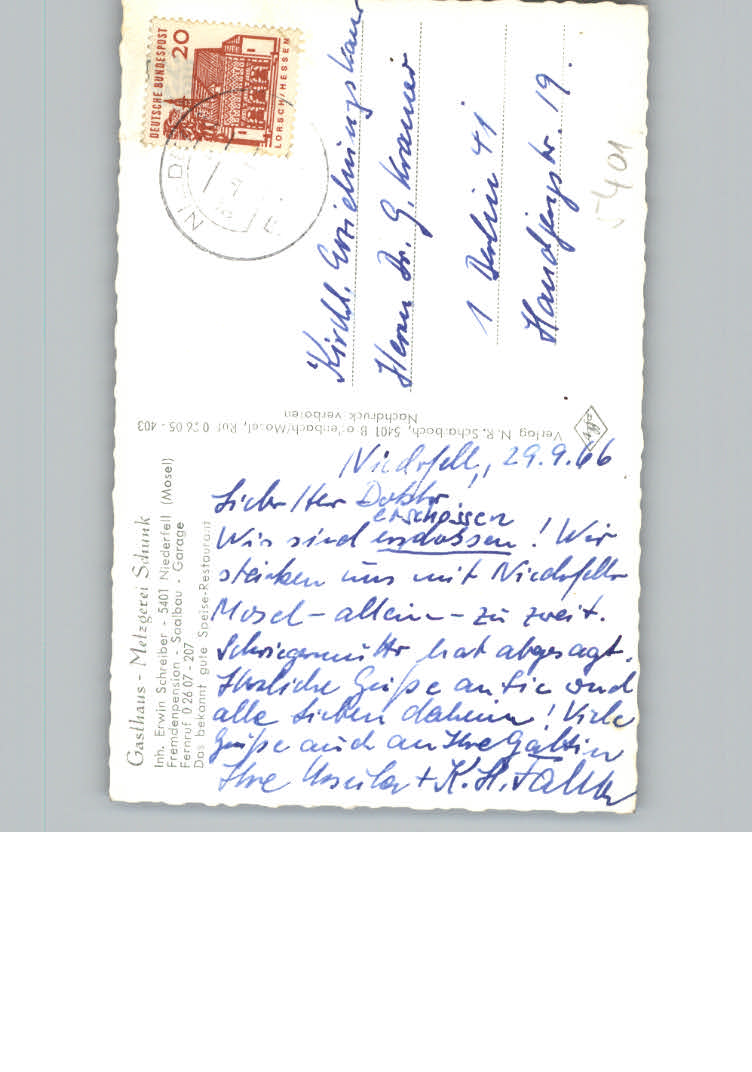 Gasthaus - Metzgerei Schunk
Inh. Erwin Schreiber - 5401 Niederfell (Mosel)
Fremdenpension - Saalbau - Garage
Fernruf 0 26 07 - 207
Das bekannt gute Speise-Restaurant
Niederfell, 29.9.66
Lieber Herr Doktor
erschossen
Wir sind ! Wir
stecken uns mit Niederfeller
Mosel - allein - zu zweit.
Schwiegermutter hat abgesagt.
Herzliche Grüße an Sie und
alle Lieben daheim! Viele
Grüße auch an Ihre Gattin
Ihre Ursula + K. H.
Verlag N. R. Scharbach, 5401 Brodenbach/Mosel, Ruf 0 26 05 - 403
Nachdruck verboten
DEUTSCHE BUNDESPOST
20
LORSCH/HESSEN
Kirchl. Erziehungskammer
Herrn Dr. G. Kramer
1 Berlin 41
Handjerystr. 19.
5401